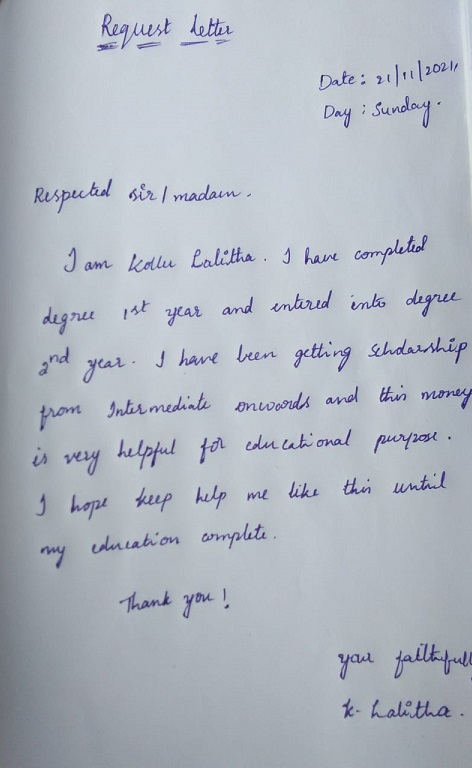 Request Letter
Date: 21/11/2021,
Day: Sunday.
Respected sir/madam.
I am Kollu Lalitha. I have completed
degree 1st year and entered into degree
2nd year. I have been getting Scholarship
from Intermediate onwards and this money
is very helpful for educational purpose.
I hope keep help me like this until
my education complete.
Thank you!
your faithfull
K. Lalitha.